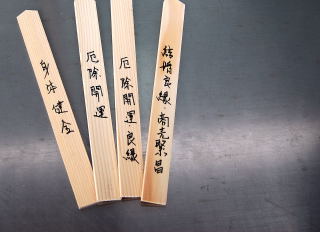 身体健全
厄除開運
厄除開運・良縁
結婚良縁・商売繁昌